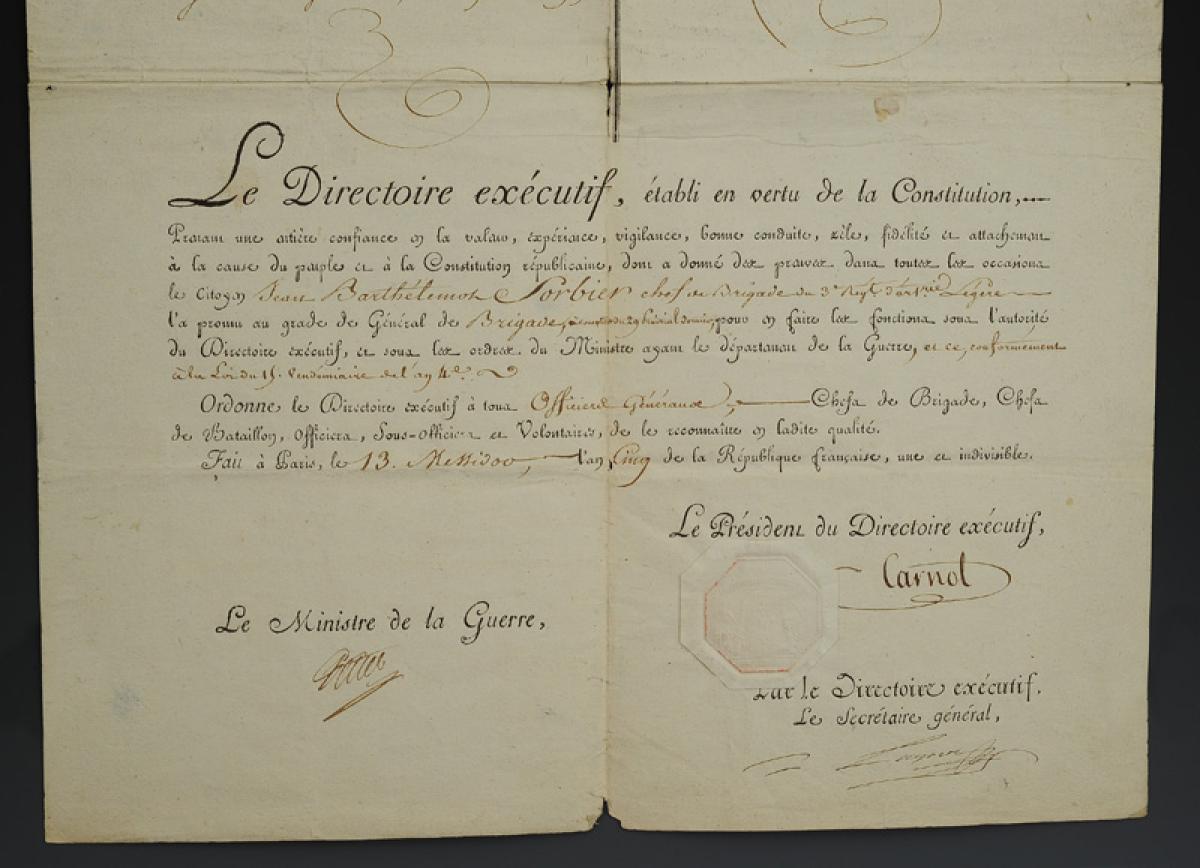 Le Directoire exécutif, établi en vertu de la Constitution,
Prenant une entière confiance en la valeur, expérience, vigilance, bonne conduite, zèle, fidélité et attachement
à la cause du peuple et à la Constitution républicaine, dont a donné des preuves dans toutes les occasions
le Citoyen Jean Barthélemot Sorbier chef de Brigade du 3e Regt. d'artrie Légère
l'a promu au grade de Général de Brigade, pour en faire les fonctions sous l'autorité
du Directoire exécutif, et sous les ordres du Ministre ayant le département de la Guerre, et ce, conformément
à la Loi du 15. Vendémiaire de l'an 4e.
Ordonne le Directoire exécutif à tous Officiers Généraux, Chefs de Brigade, Chefs
de Bataillon, Officiers, Sous-Officiers et Volontaires, de le reconnaître en ladite qualité.
Fait à Paris, le 13. Messidor, l'an Cinq de la République française, une et indivisible.
Le Président du Directoire exécutif,
Carnot
Le Ministre de la Guerre,
Par le Directoire exécutif.
Le Secrétaire général,